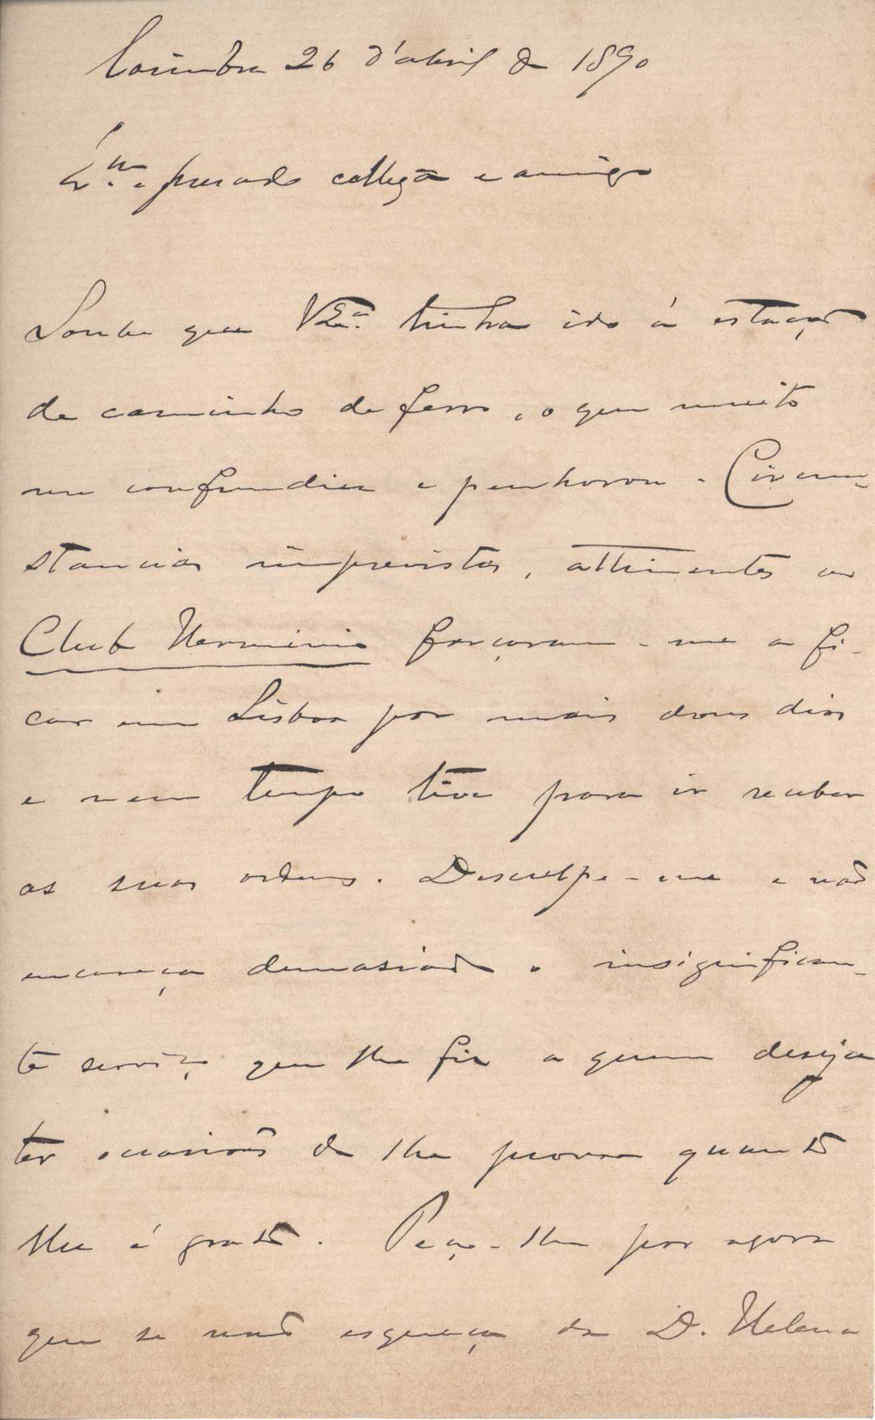 Coimbra 26 d'abril de 1890
presado collega e amigo
Soube que V. Exª. tinha ido á estação
de caminho de ferro, o que muito
me confundiu e penhorou. Circum-
stancias imprevistas, attinentes ao
Club Herminio forçaram-me a fi-
car em Lisboa por mais dous dias
e nem tempo tive para ir receber
as suas ordens. Desculpe-me e não
encareça demasiado o insignifican-
te serviço que lhe fiz a quem deseja
ter occasiões de lhe provar quanto
lhe é grato. Peço-lhe por agora
que se não esqueça da D. Helena